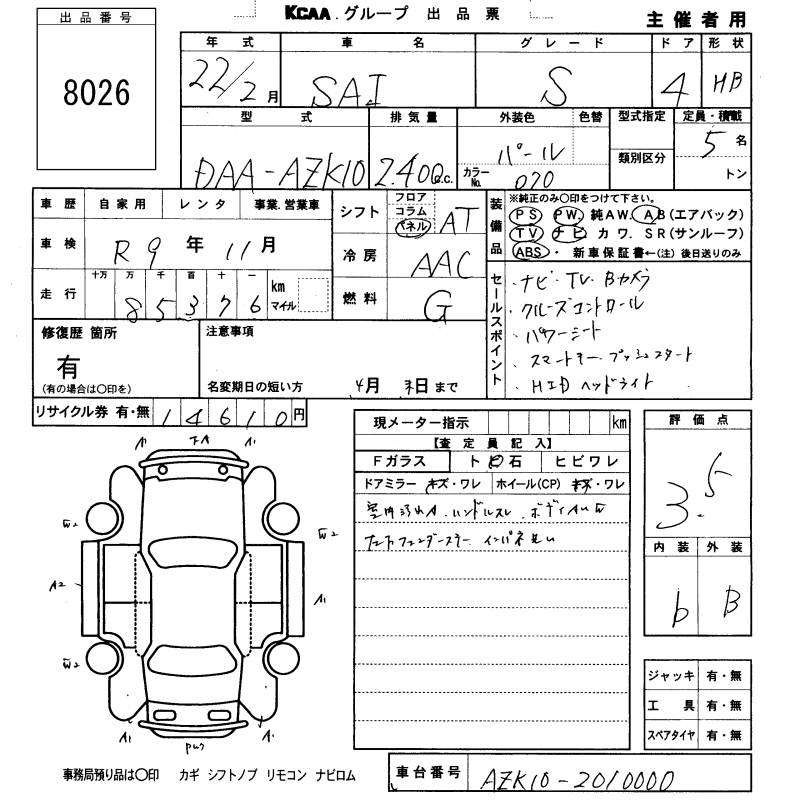 KCAA.グループ 出品票
主催者用
出品番号
8026
年式 車名 グレード ドア 形状
22/2月 SAI S 4 HB
型式 排気量 外装色 色替 型式指定 定員・積載
DAA-AZK10 2.400c.c. パール カラーNo. 070 類別区分 5名 トン
車歴 自家用 レンタ 事業.営業車
車検 R9年11月
走行 十万 万 千 百 十 一 km マイル
85376
シフト フロア コラム パネル AT
冷房 AAC
燃料 G
装備品 ※純正のみ〇印をつけて下さい。
PS PW 純AW. AB(エアバック)
TV ナビ カワ. SR(サンルーフ)
ABS・新車保証書←(注) 後日送りのみ
セールスポイント
・ナビ・TV・Bカメラ
・クルーズコントロール
・パワーシート
・スマートキー・プッシュスタート
・HIDヘッドライト
修復歴 箇所
有
(有の場合は〇印を)
注意事項
名変期日の短い方 4月 末日まで
リサイクル券 有・無 14610円
現メーター指示 km
【査定員記入】
Fガラス トビ石 ヒビワレ
ドアミラー キズ・ワレ ホイール(CP) キズ・ワレ
室内汚れA.ハンドルスレ.ボディAUW
評価点
3.5
内装 外装
b B
A1 A1
W2 W2
A2 A1
W2 W2
A1 A1
ジャッキ 有・無
工具 有・無
スペアタイヤ 有・無
事務局預り品は〇印 カギ シフトノブ リモコン ナビロム
車台番号 AZK10-2010000